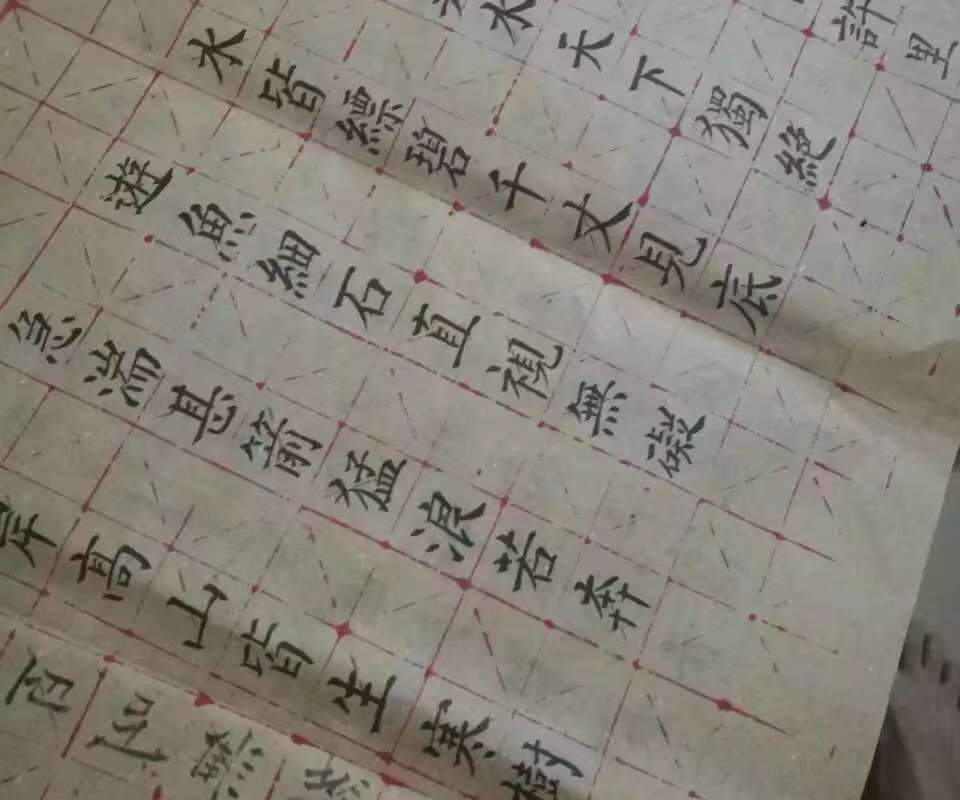 許里
水天下獨絕
水皆縹碧千丈見底
遊魚細石直視無礙
急湍甚箭猛浪若奔
岸高山皆生寒樹
百叫無